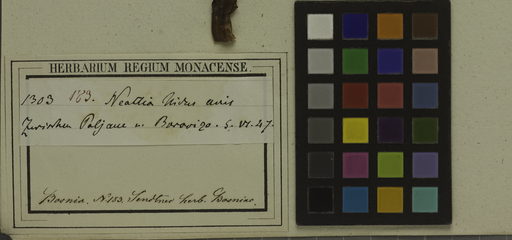 HERBARIUM REGIUM MONACENSE.
1303 183. Neottia Nidus avis
Zwischen Poljane u. Borovizo. 5. VI. 47.
Bosnia. No 183. Sendtner herb. Bosniae.